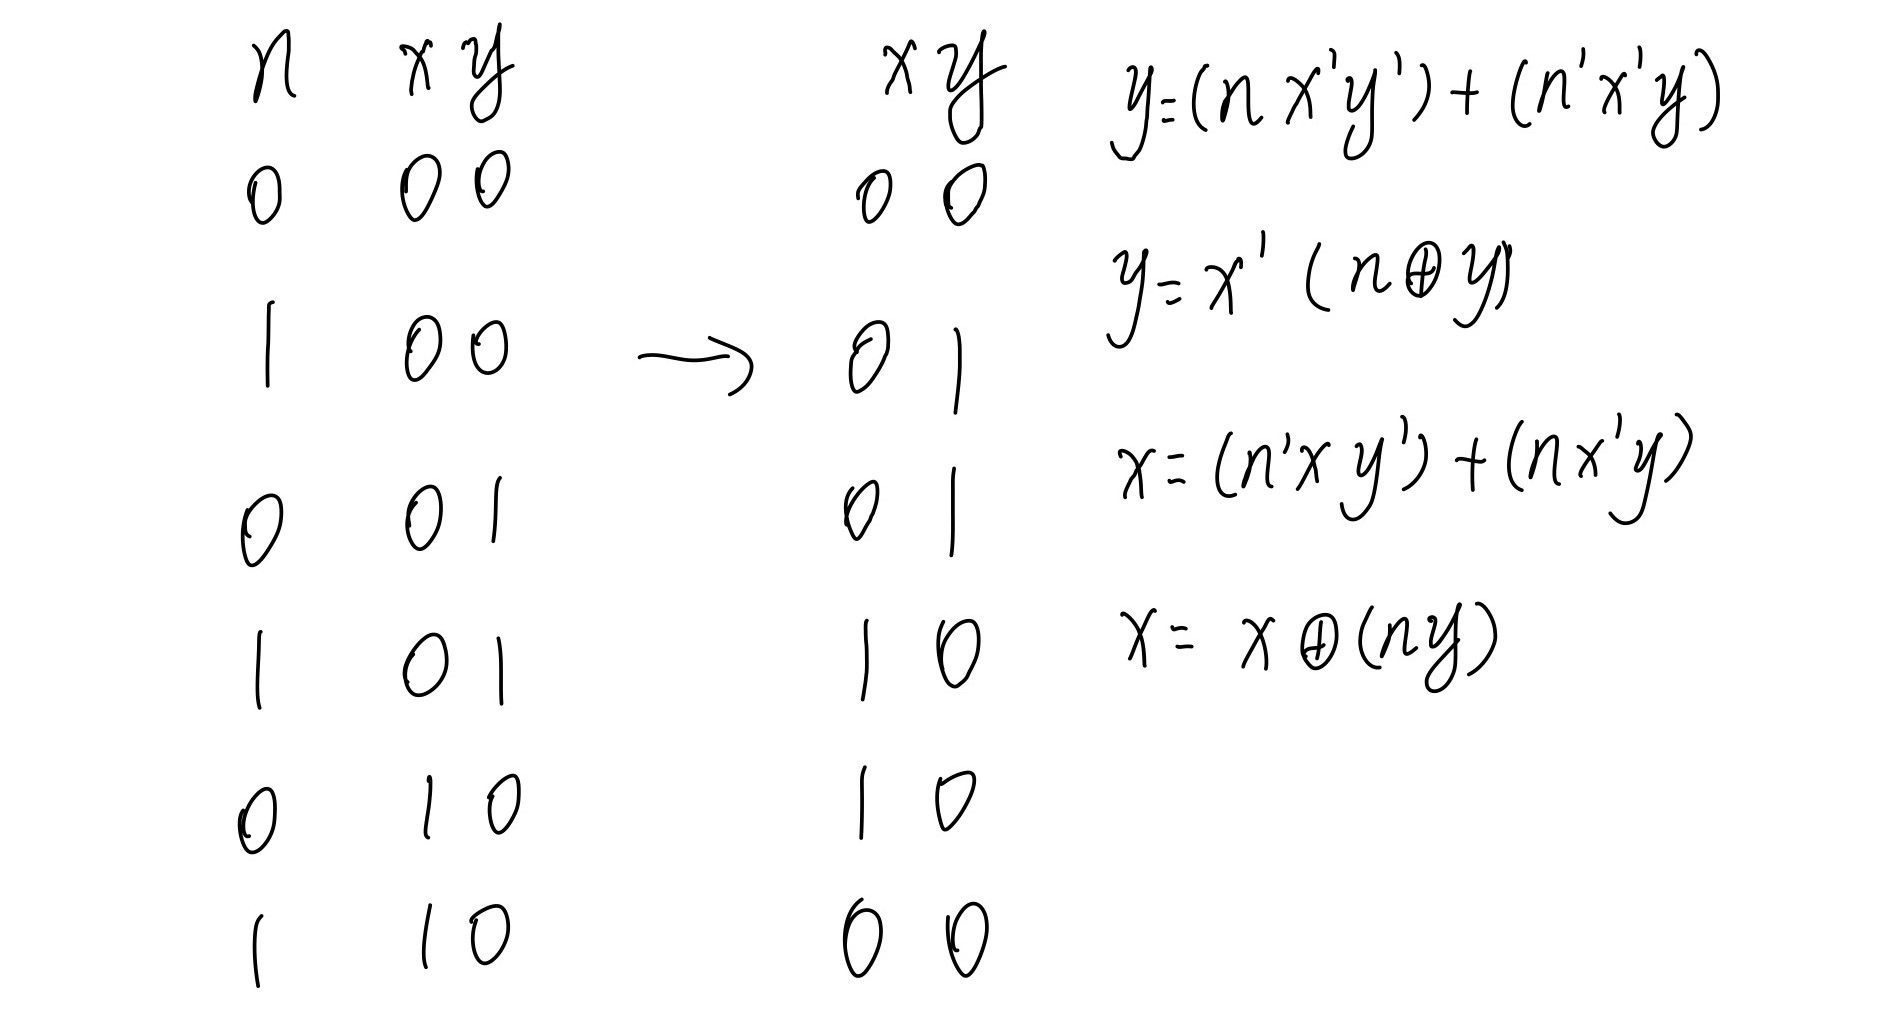 n x y x y
0 0 0 0 0
1 0 0 → 0 1
0 0 1 0 1
1 0 1 1 0
0 1 0 1 0
1 1 0 0 0
y=(n x'y')+(n'x'y)
y= x' (n⊕y)
x= (n'x y')+(n x'y)
x= x⊕(ny)